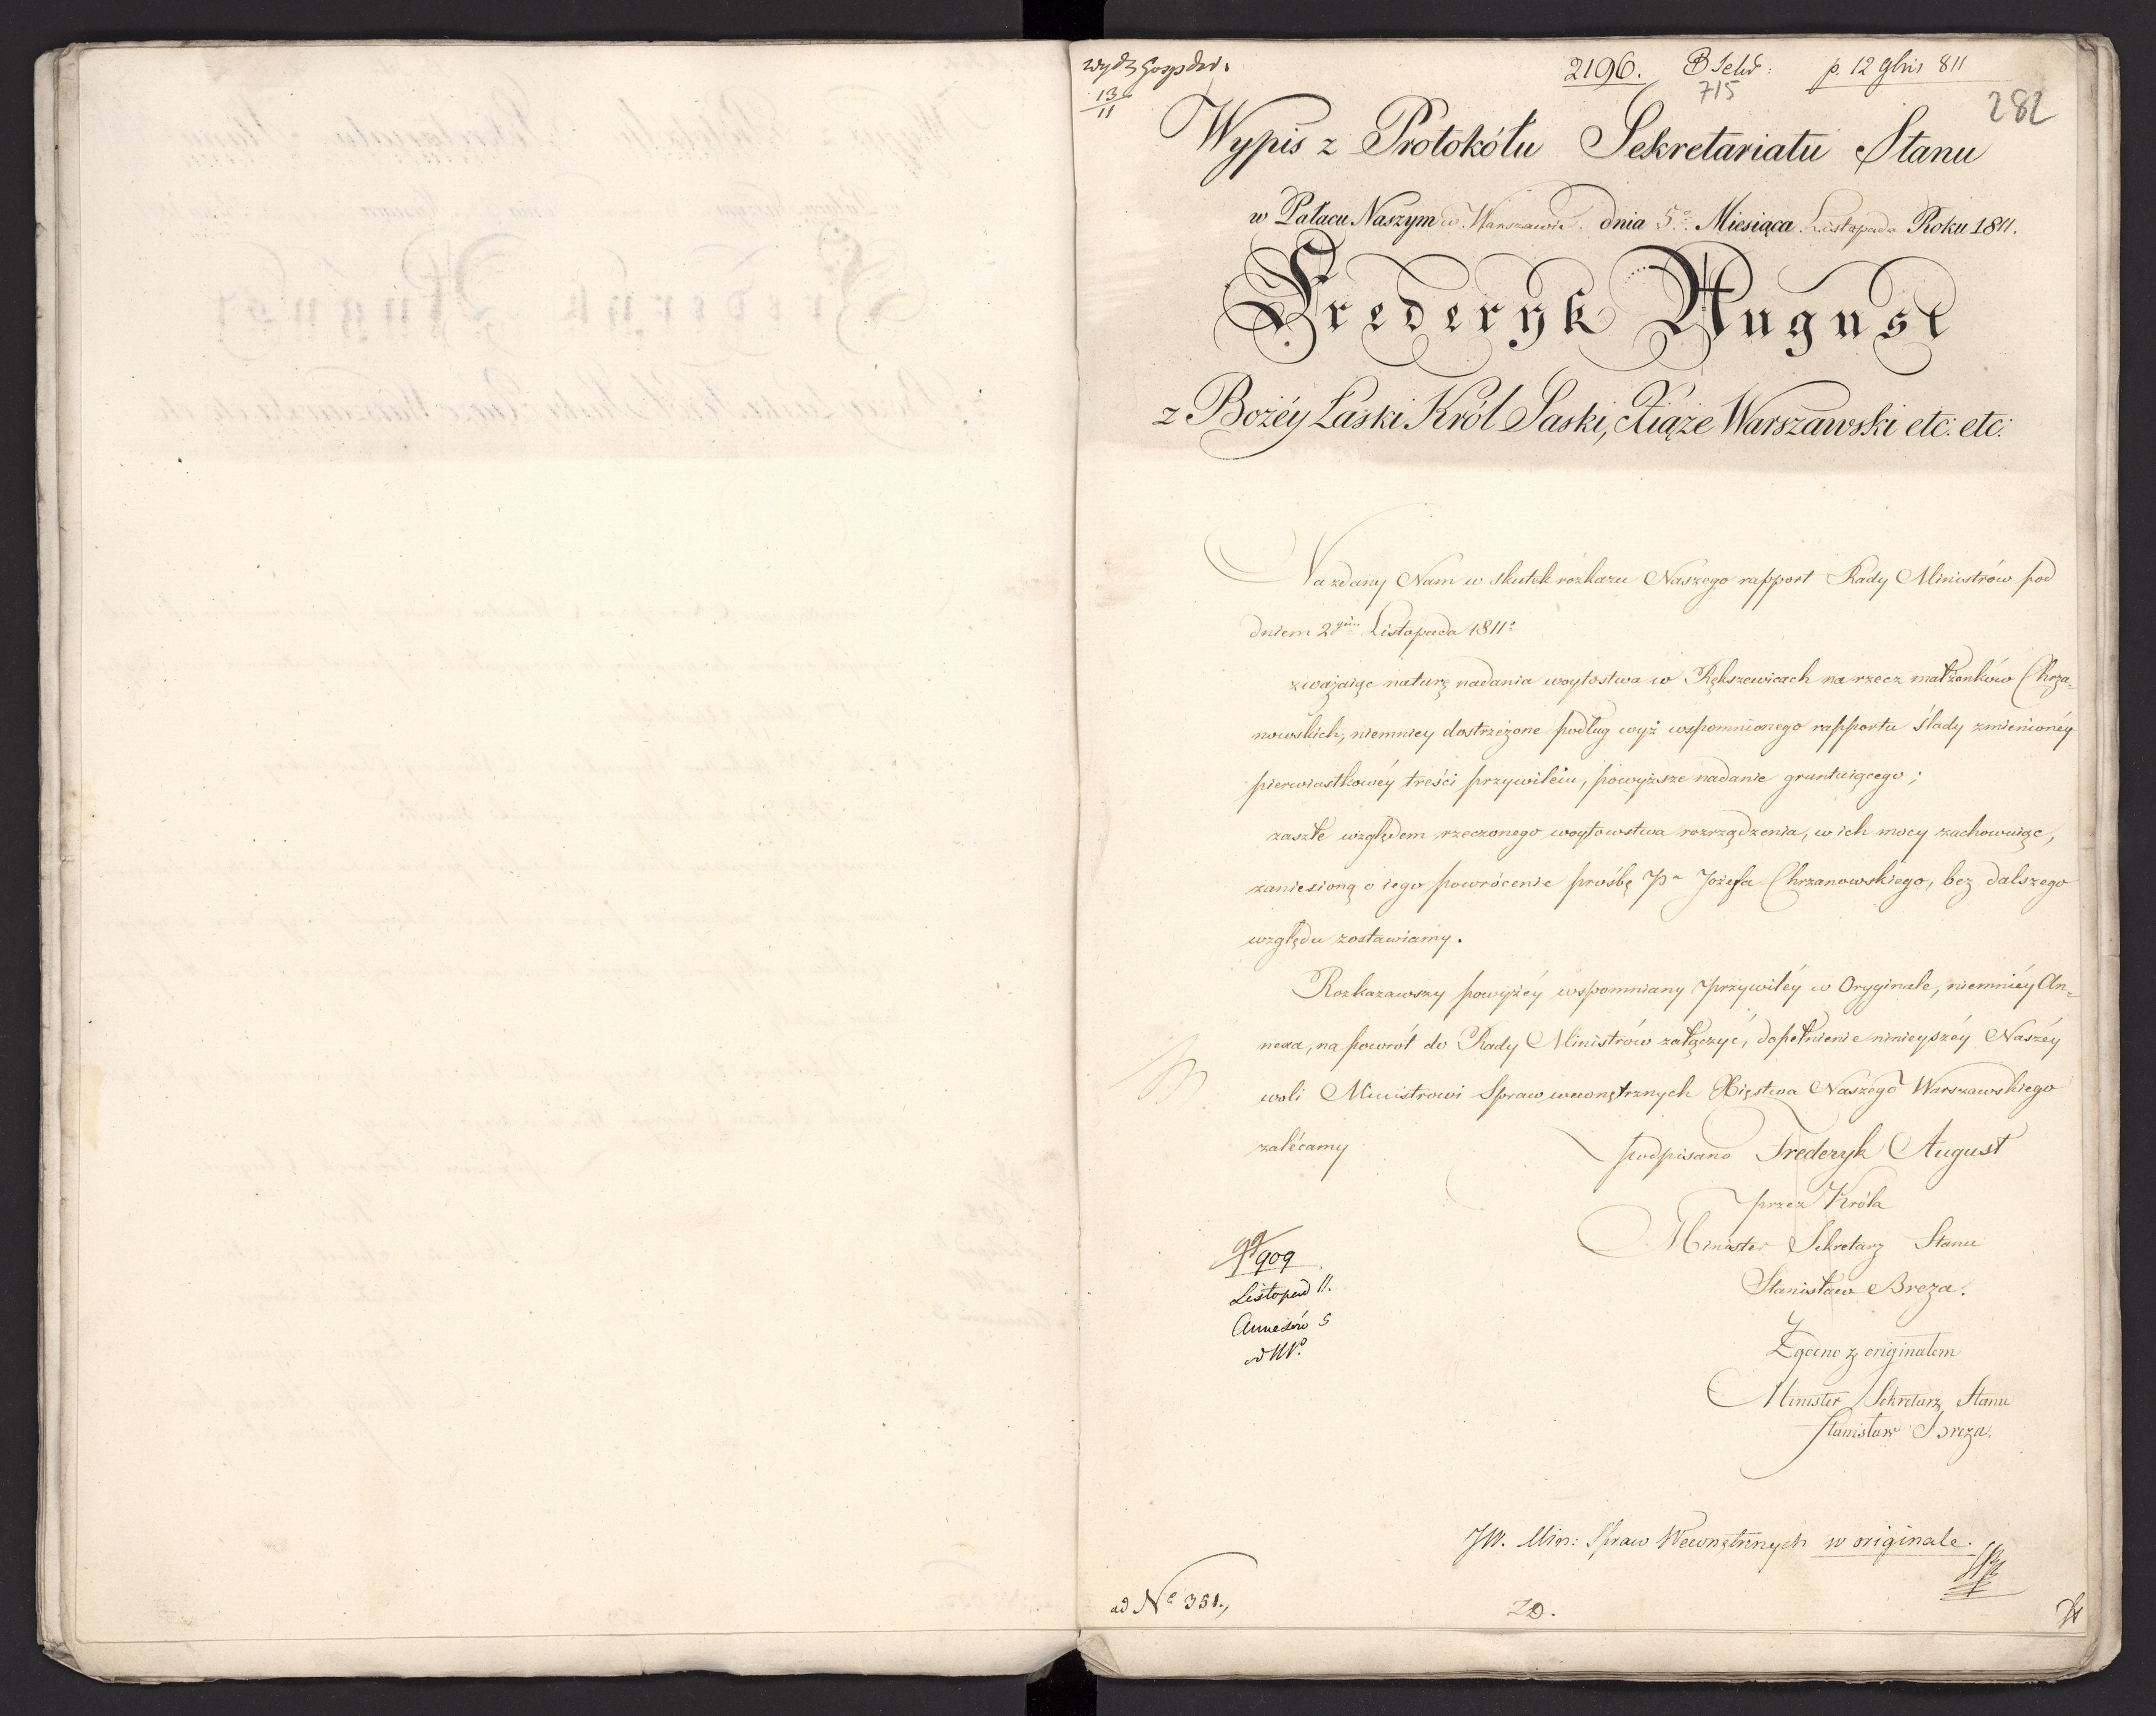 wydz Gospdar.
13/11
2196. B Sekr: p. 12 9bris 811
715
282
Wypis z Protokółu Sekretariatu Stanu
w Pałacu Naszym w Warszawie. dnia 5º Miesiąca Listopada Roku 1811.
Frederyk August
z Bożéy Łaski Król Saski, Xiąże Warszawski etc: etc:
Na zdany Nam w skutek rozkazu Naszego rapport Rady Ministrów pod
dniem 2gim Listopada 1811º
zważaiąc naturę nadania woytostwa w Rększewicach na rzecz małżonków Chrza=
nowskich, niemniey dostrzeżone podług wyż wspomnionego rapportu ślady zmienionéy
pierwiastkowéy treści przywileiu, powyższe nadanie gruntuiącego;
zaszłe względem rzeczonego woytowstwa rozrządzenia, w ich mocy zachowuiąc,
zaniesioną o iego powrócenie prośbę Pa Józefa Chrzanowskiego, bez dalszego
względu zostawiamy.
Rozkazawszy powyżéy wspomniany przywiléy w Oryginale, niemniéy An=
nexa, na powrót do Rady Ministrów załączyć, dopełnienie ninieyszéy Naszéy
woli Ministrowi Spraw wewnętrznych Xięstwa Naszego Warszawskiego
zalécamy
podpisano Frederyk August
przez Króla
Minister Sekretarz Stanu
Stanisław Breza.
Zgodno z originałem
Minister Sekretarz Stanu
Stanisław Breza.
909
Listopad 11.
Annexów 5
JW. Min: Spraw Wewnętrznych w originale.
ad No 351.,